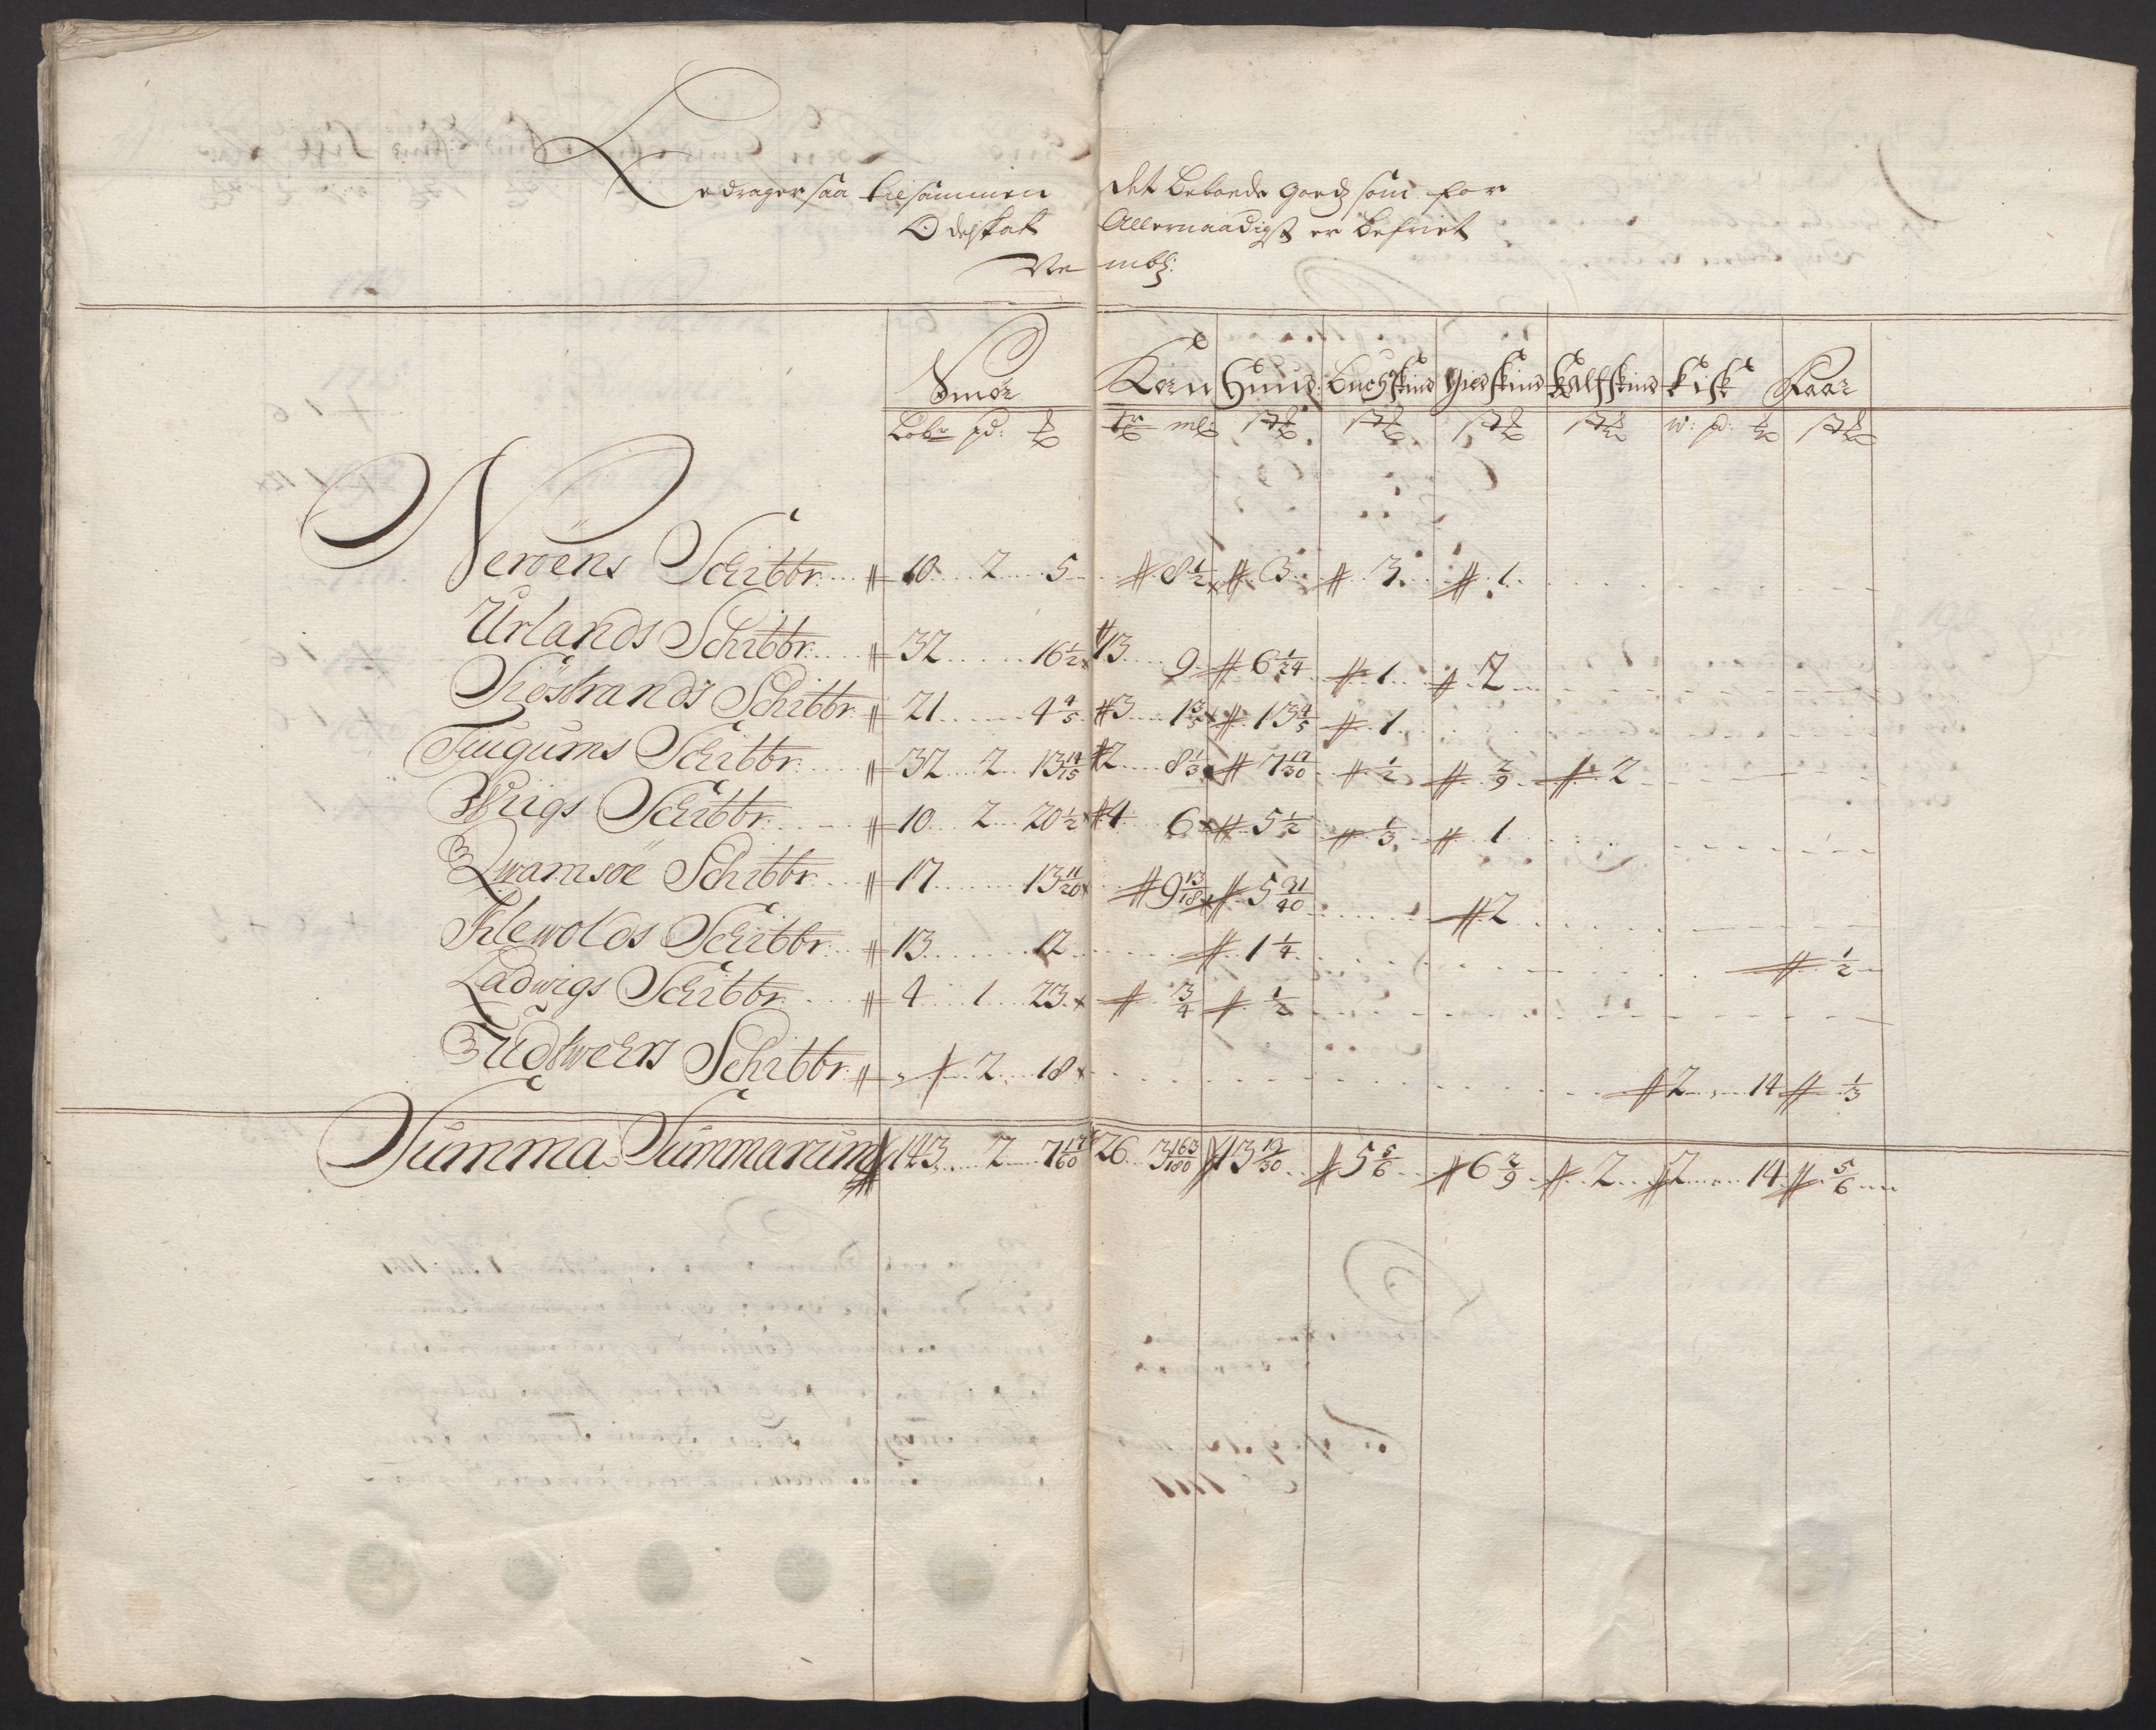 Bedrager saa tilsammen det beboede goedz som for
Ødeskat Allernaadigst er befriet
Nemblig:
Smör Korn Huud: Buchskind Giedskind Kalfskind Fisk Faar
Löbr pd: ℔ tr ml: st℔ st℔ st℔ st℔ w: pd: ℔ st℔
Neröens Schibbr. 10 2 5 8 1/2 3 3 1
Urlands Schibbr. 32 16 1/2 13 9 6 1/24 1 2
Siöstrands Schibbr. 21 4 4/5 3 1 3/5 13 4/5 1
Fuigums Schibbr. 32 2 13 14/15 2 8 1/3 7 17/30 1/2 2/9 2
Wiigs Schibbr. 10 2 20 1/2 4 6 5 1/2 1/3 1
Qwamsöe Schibbr. 17 13 11/20 9 13/18 5 31/40 2
Klewolds Schibbr. 13 12 1 1/4 1/2
Ladwigs Schibbr. 4 1 23 3/4 1/2
Schibbr. 2 18 2 14 1/3
Summa Summarum 143 2 7 17/60 26 3 163/180 5 5/6 6 2/9 2 2 14 5/6